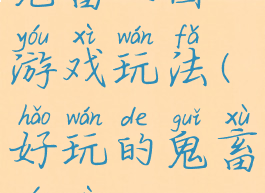 yóu xì wán fǎ
游戏玩法(
hǎo wán de guǐ xù
好玩的鬼畜